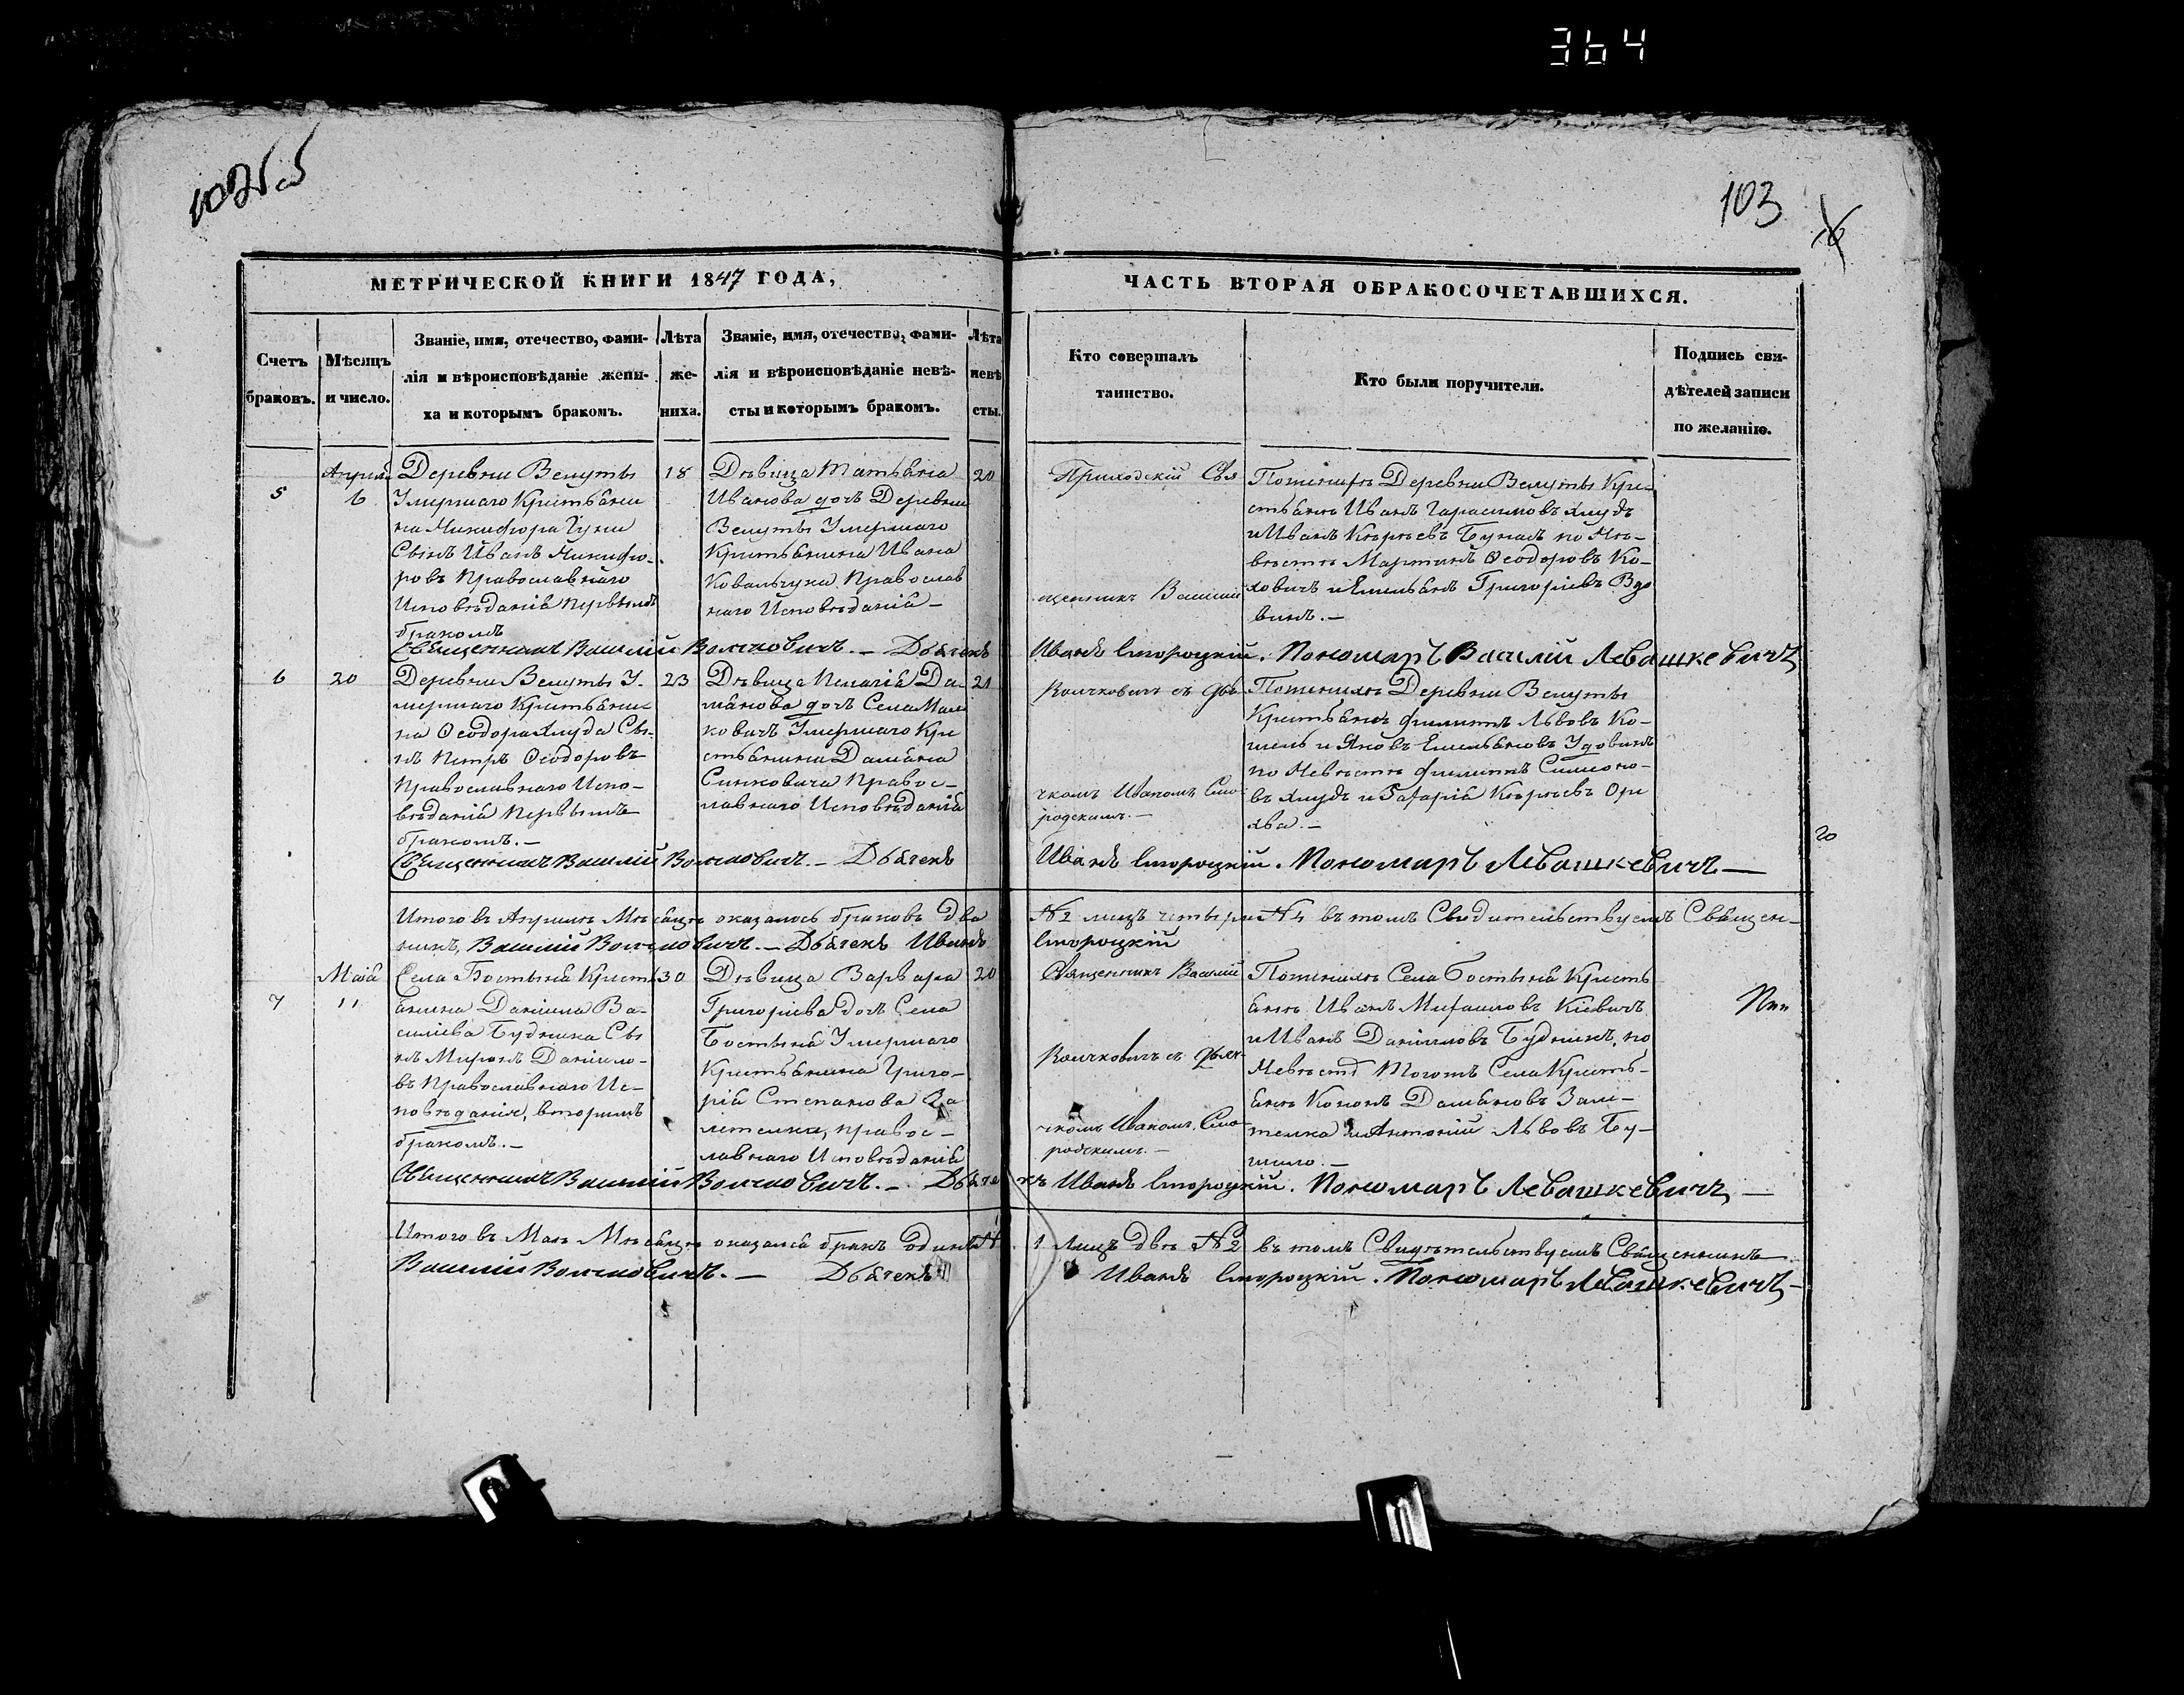 364
103
МЕТРИЧЕСКОЙ КНИГИ 1847 ГОДА,
ЧАСТЬ ВТОРАЯ ОБРАКОСОЧЕТАВШИХСЯ.
Счетъ
браковъ.
Мѣсяцъ
и число.
Званіе, имя, отечество, фами-
лія и вѣроисповѣданіе жени-
ха и которымъ бракомъ.
Лѣта
же-
ниха.
Званіе, имя, отечество, фами-
лія и вѣроисповѣданіе невѣ-
сты и которымъ бракомъ.
Лѣта
невѣ
сты.
Кто совершалъ
таинство.
Кто были поручители.
Подпись сви-
дѣтелей записи
по желанію.
5
Априля
6
Деревни Велуты
Умершаго Крестьяни
на Никифора
Сынъ Иванъ Никифо-
ровъ Православнаго
Исповѣданія первымъ
бракомъ
18
Дѣвица Татьяна
Иванова дочъ Деревни
Велуты Умершаго
Крестьянина Ивана
Ковальчука Православ
наго Исповѣданія —
20
Приходскій Свя
щенникъ Василій
По Женихѣ Деревни Велуты Кре-
стьяне Иванъ Гарасимовъ Хлудъ
и Иванъ по Не-
вѣсте Мартинъ Ѳеодоровъ Ко-
ховичъ и Емельянъ Григоріевъ Вдо
винъ. —
Священникъ Василій Волчковичъ. — Дьячекъ
Иванъ Смород​скій. Пономарь Василій Левашкевичъ
6
20
Деревни Велуты У-
мершаго Крестьяни-
на Ѳеодора Хлуда Сы-
нъ Петръ Ѳеодоровъ
Православнаго Испо-
вѣданія Первымъ
бракомъ. —
23
Дѣвица Пелагія Да-
міянова дочъ Села Мал
ковичъ Умершаго Кре
стьянина Даміяна
Синковича Правос-
лавнаго Исповѣданія
21
Волчковичъ съ Дья-
чкомъ Иваномъ Смо-
родскимъ. —
По Женихѣ Деревни Велуты
Крестьяне Филипъ Львовъ Ко-
шель и Яковъ Емельяновъ Удовинъ
по Невѣсте Филипъ Симоно-
въ Хлудъ и Захарія
хва. —
Священникъ Василій Волчковичъ. — Дьячекъ
Иванъ Смородскій. Пономарь Левашкевичъ —
20
Итого въ Априлѣ Мѣсяце оказалось браковъ два
№ 2 лицъ четыри № 4 въ томъ Свидительствуемъ Священ-
никъ Василій Волчковичъ. — Дьячекъ Иванъ
Смородскій
7
Маія
11
Села Бостыня Кресть
янина Даніила Ва-
силіева Будника Сы
нъ Миронъ Данiило-
въ Православнаго Ис-
повѣданія, вторымъ
бракомъ. —
30
Дѣвица Варвара
Григоріева дочъ Села
Бостыня Умершаго
Крестьянина Григо-
рія Степанова За
летелки, правос-
лавнаго Исповѣданія
20
Священникъ Василій
Волчковичъ съ Дьяч-
чкомъ Иваномъ Смо-
родскимъ. —
По Женихѣ Села Бостыня Кресть
яне Иванъ Михаиловъ Кіевичъ
и Иванъ Даніиловъ Будникъ, по
Невѣсте Тогожъ Села Кресть-
яне Кононъ Даміяновъ Зале-
телка и Антоній Львовъ Бу-
шило. —
Священникъ Василій Волчковичъ. — Дьяче
къ Иванъ Смородскій. Пономарь Левашкевичъ —
Итого въ Маѣ Мѣсяце оказался бракъ одинъ №
1 Лицъ двѣ № 2 въ томъ Свидѣтельствуемъ Священникъ
Василій Волчковичъ. — Дьячекъ
Иванъ Смородскій. Пономарь Левашкевичъ —